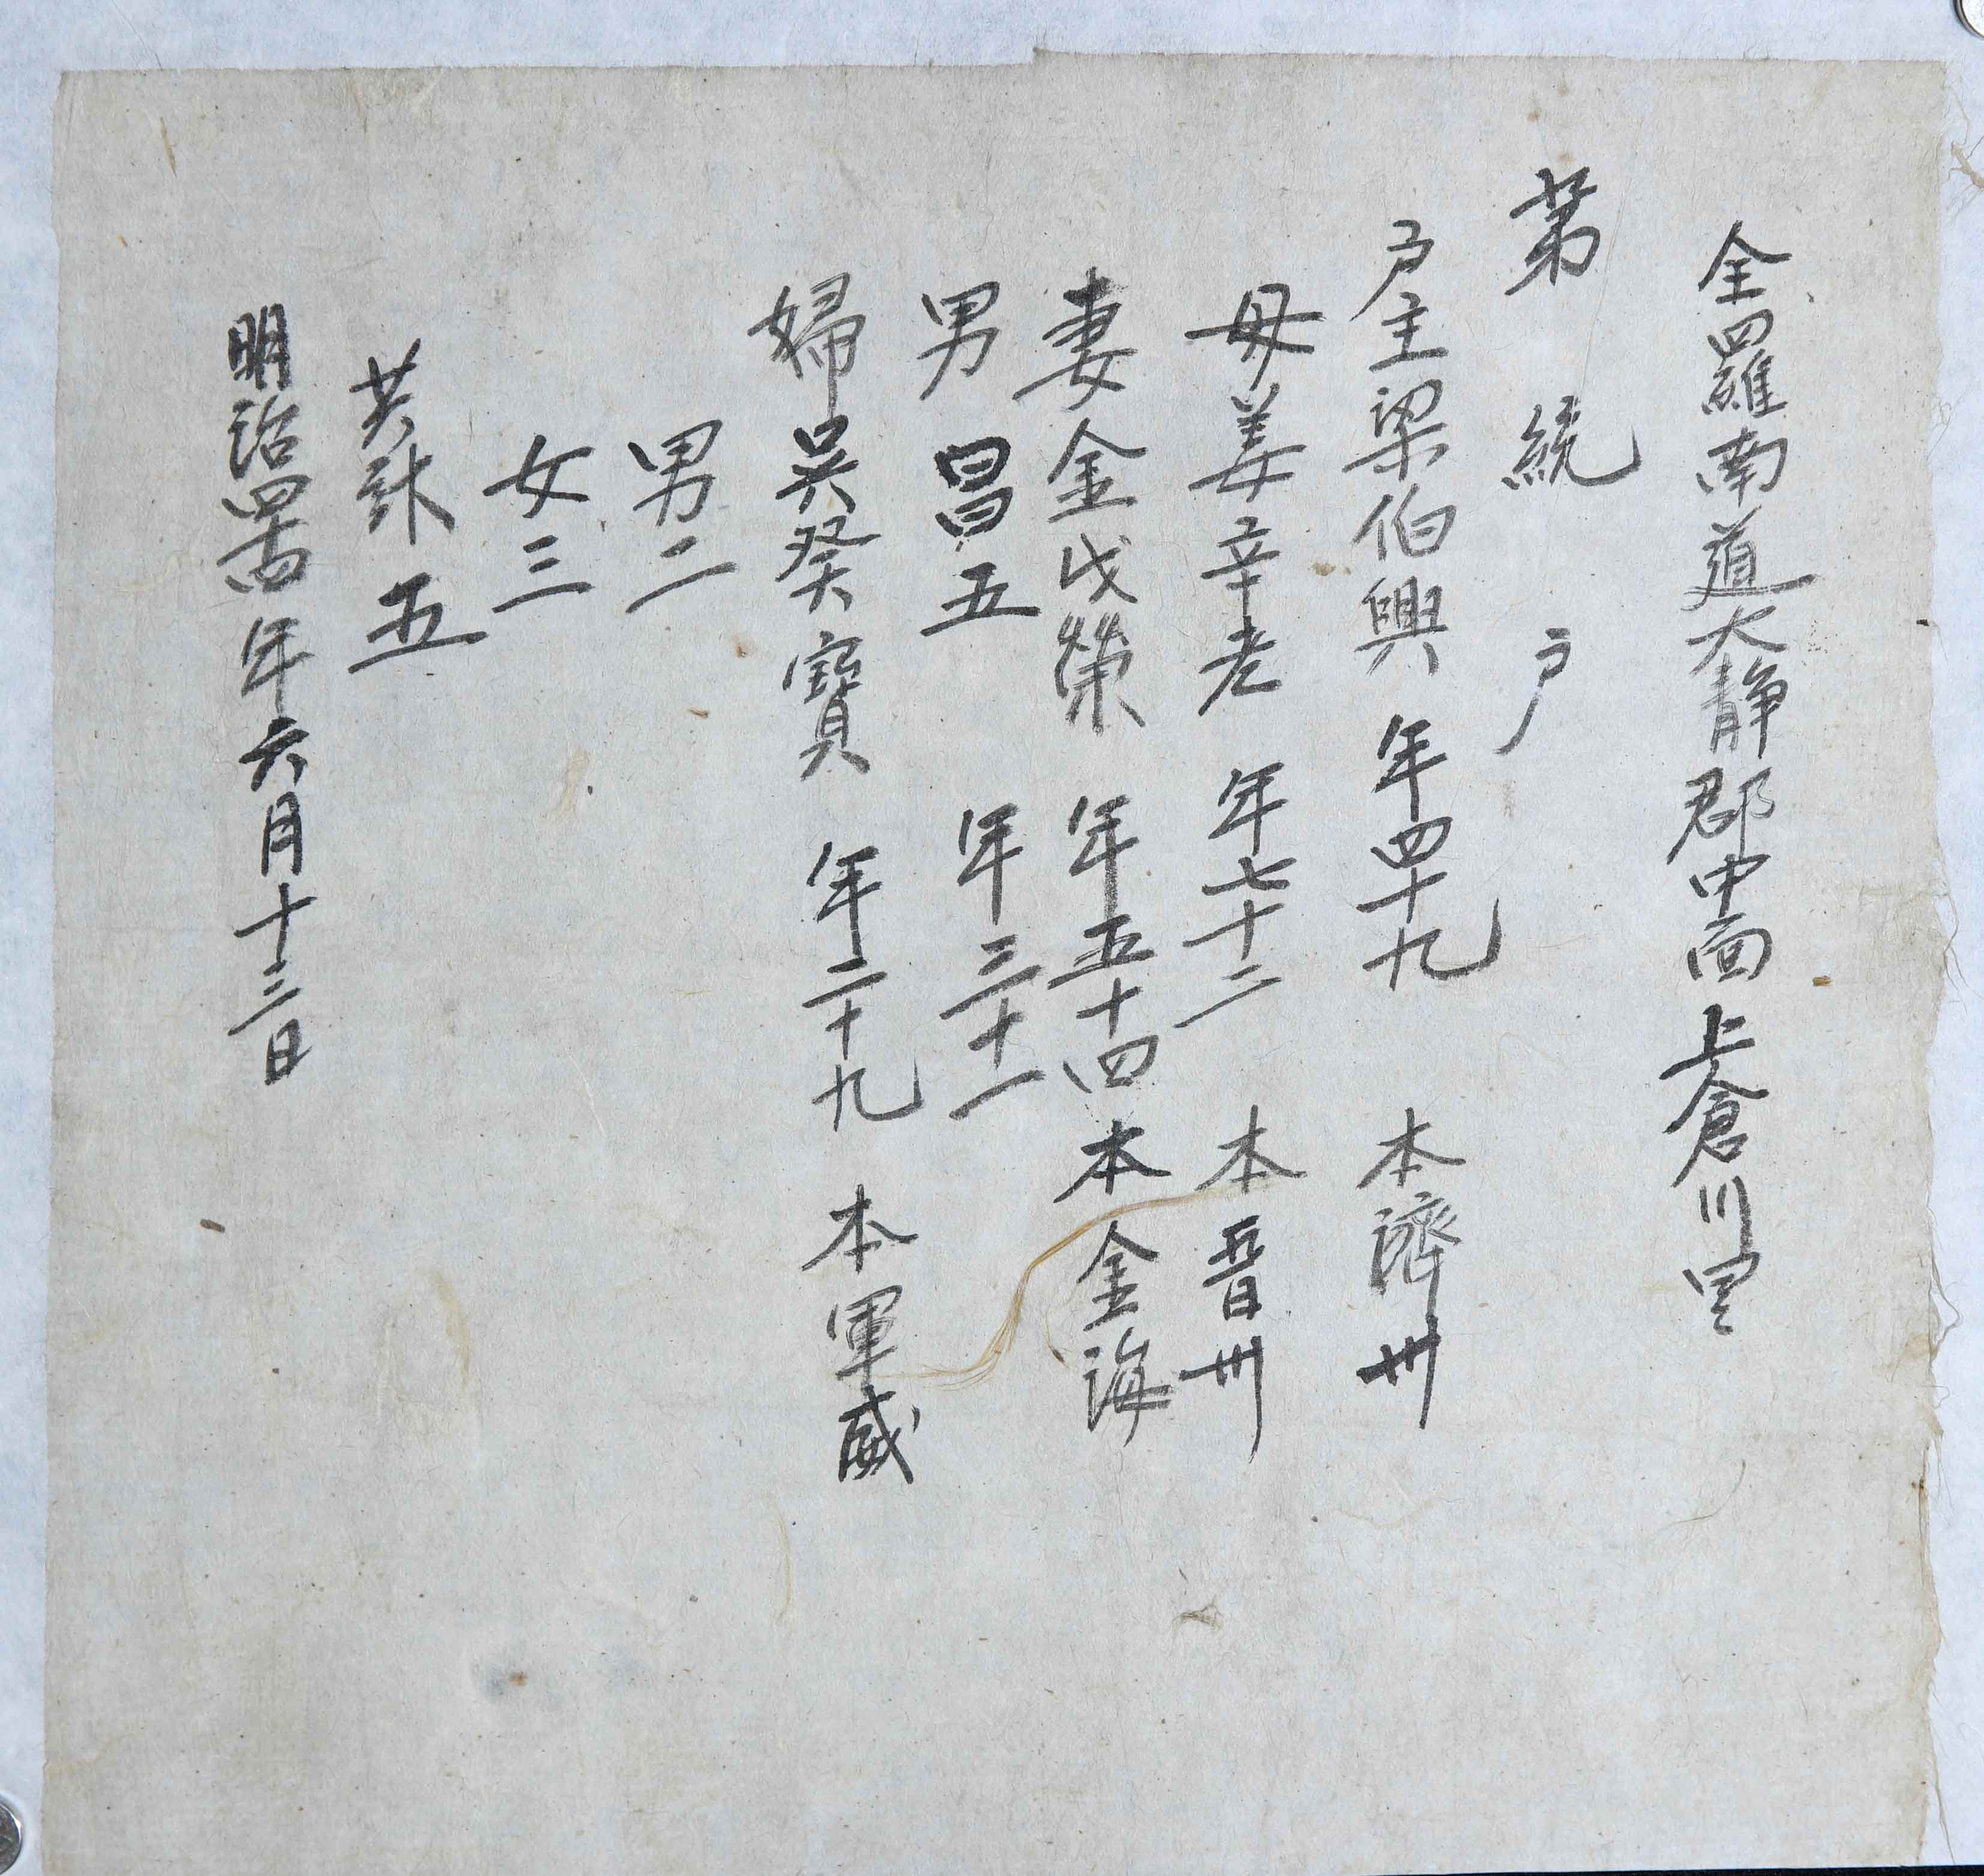 全羅南道大静郡中面上倉川里
第 統 户
户主梁伯興 年四十九 本濟州
母姜辛老 年七十二 本晋州
妻金戊榮 年五十四 本金海
男 昌五 年三十一
婦吴癸寶 年二十九 本軍威
男二
女三
共計五
明治四十四年六月十三日